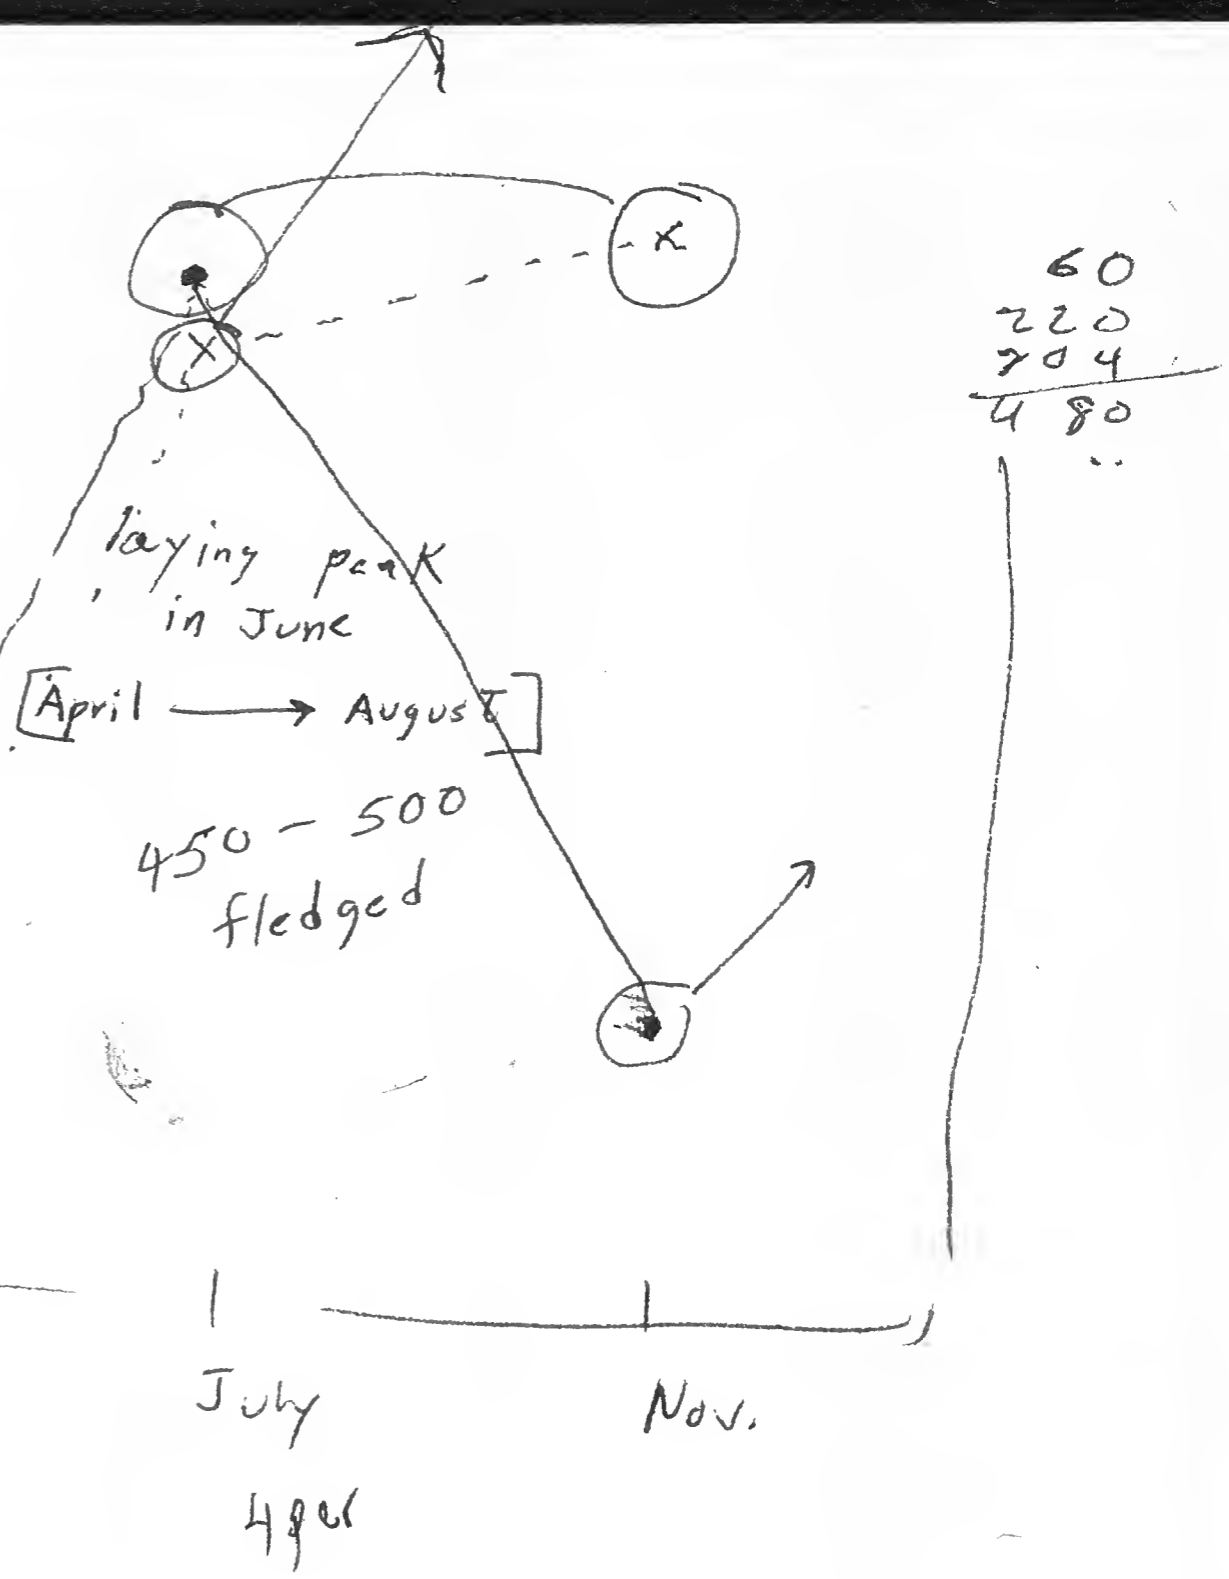 60
220
204
4 80
laying peak
in June
[April → August]
450 - 500
fledged
July
Nov.
4 per